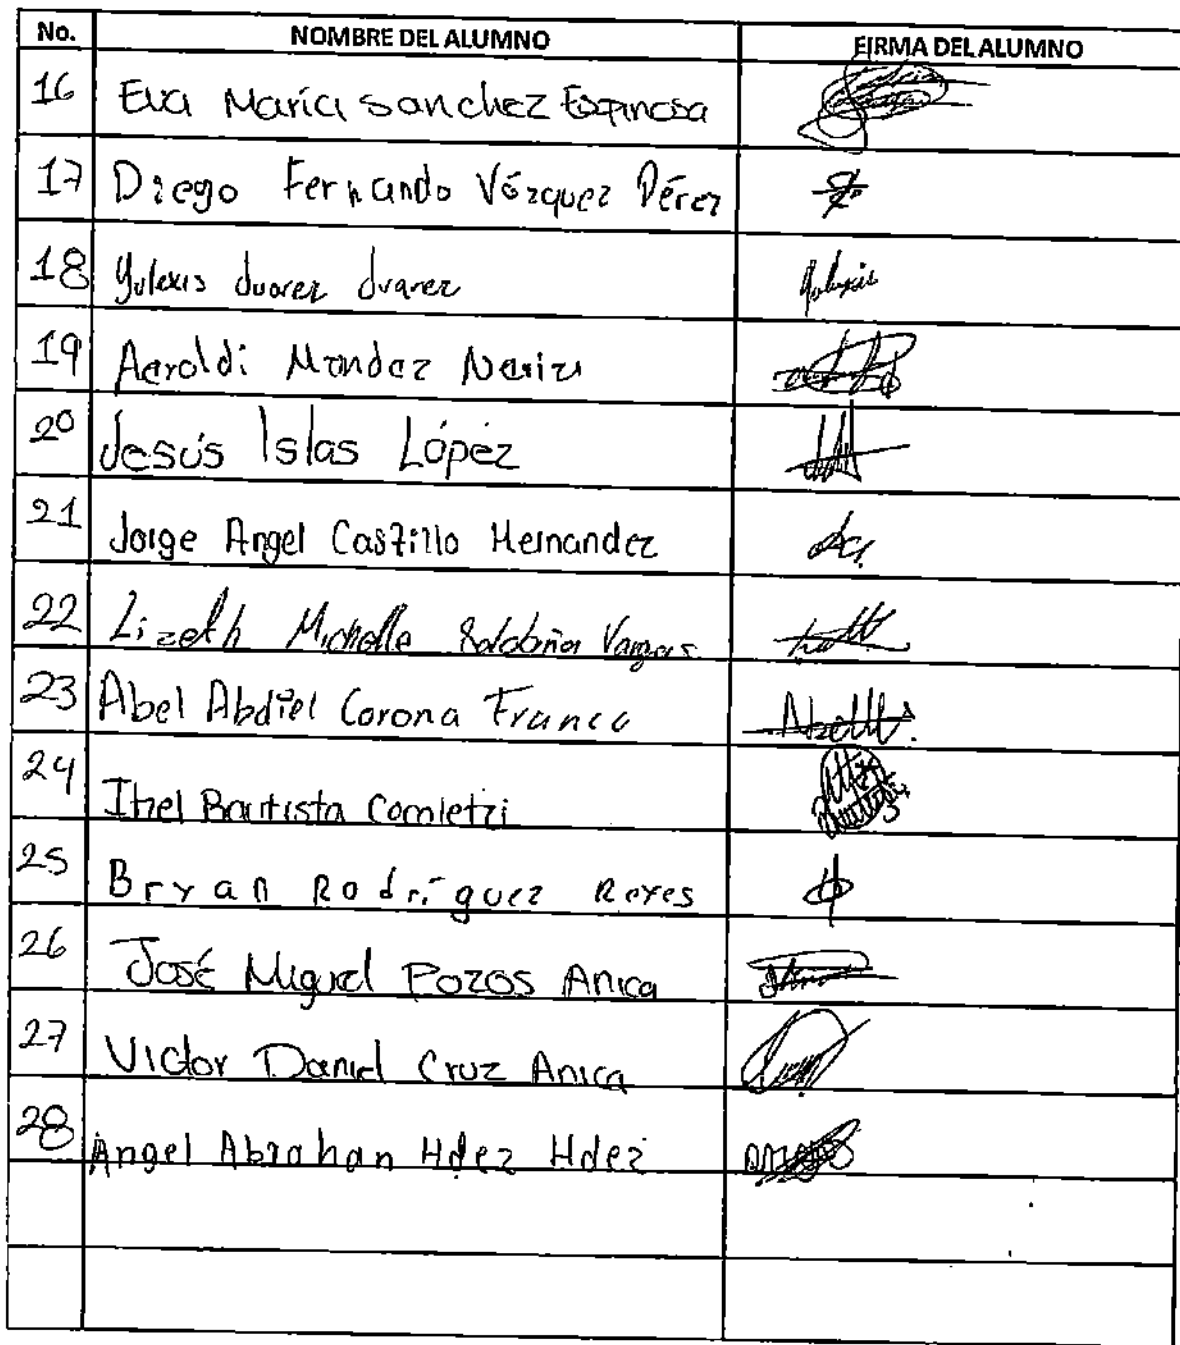 No. NOMBRE DEL ALUMNO FIRMA DEL ALUMNO
16 Eva María Sanchez Espinosa
17 Diego Fernando Vázquez Pérez
18 Yulexis Juarez Juarez Yulexis
19 Aeroldi Mendez
20 Jesús Islas López
21 Jorge Angel Castillo Hernandez
22 Lizeth Michelle Saldaña Vargas
23 Abel Abdiel Corona Franco
24 Itzel Bautista
25 Bryan Rodríguez Reyes
26 José Miguel Pozos Anica
27 Victor Daniel Cruz Anica
28 Angel Abrahan Hdez Hdez